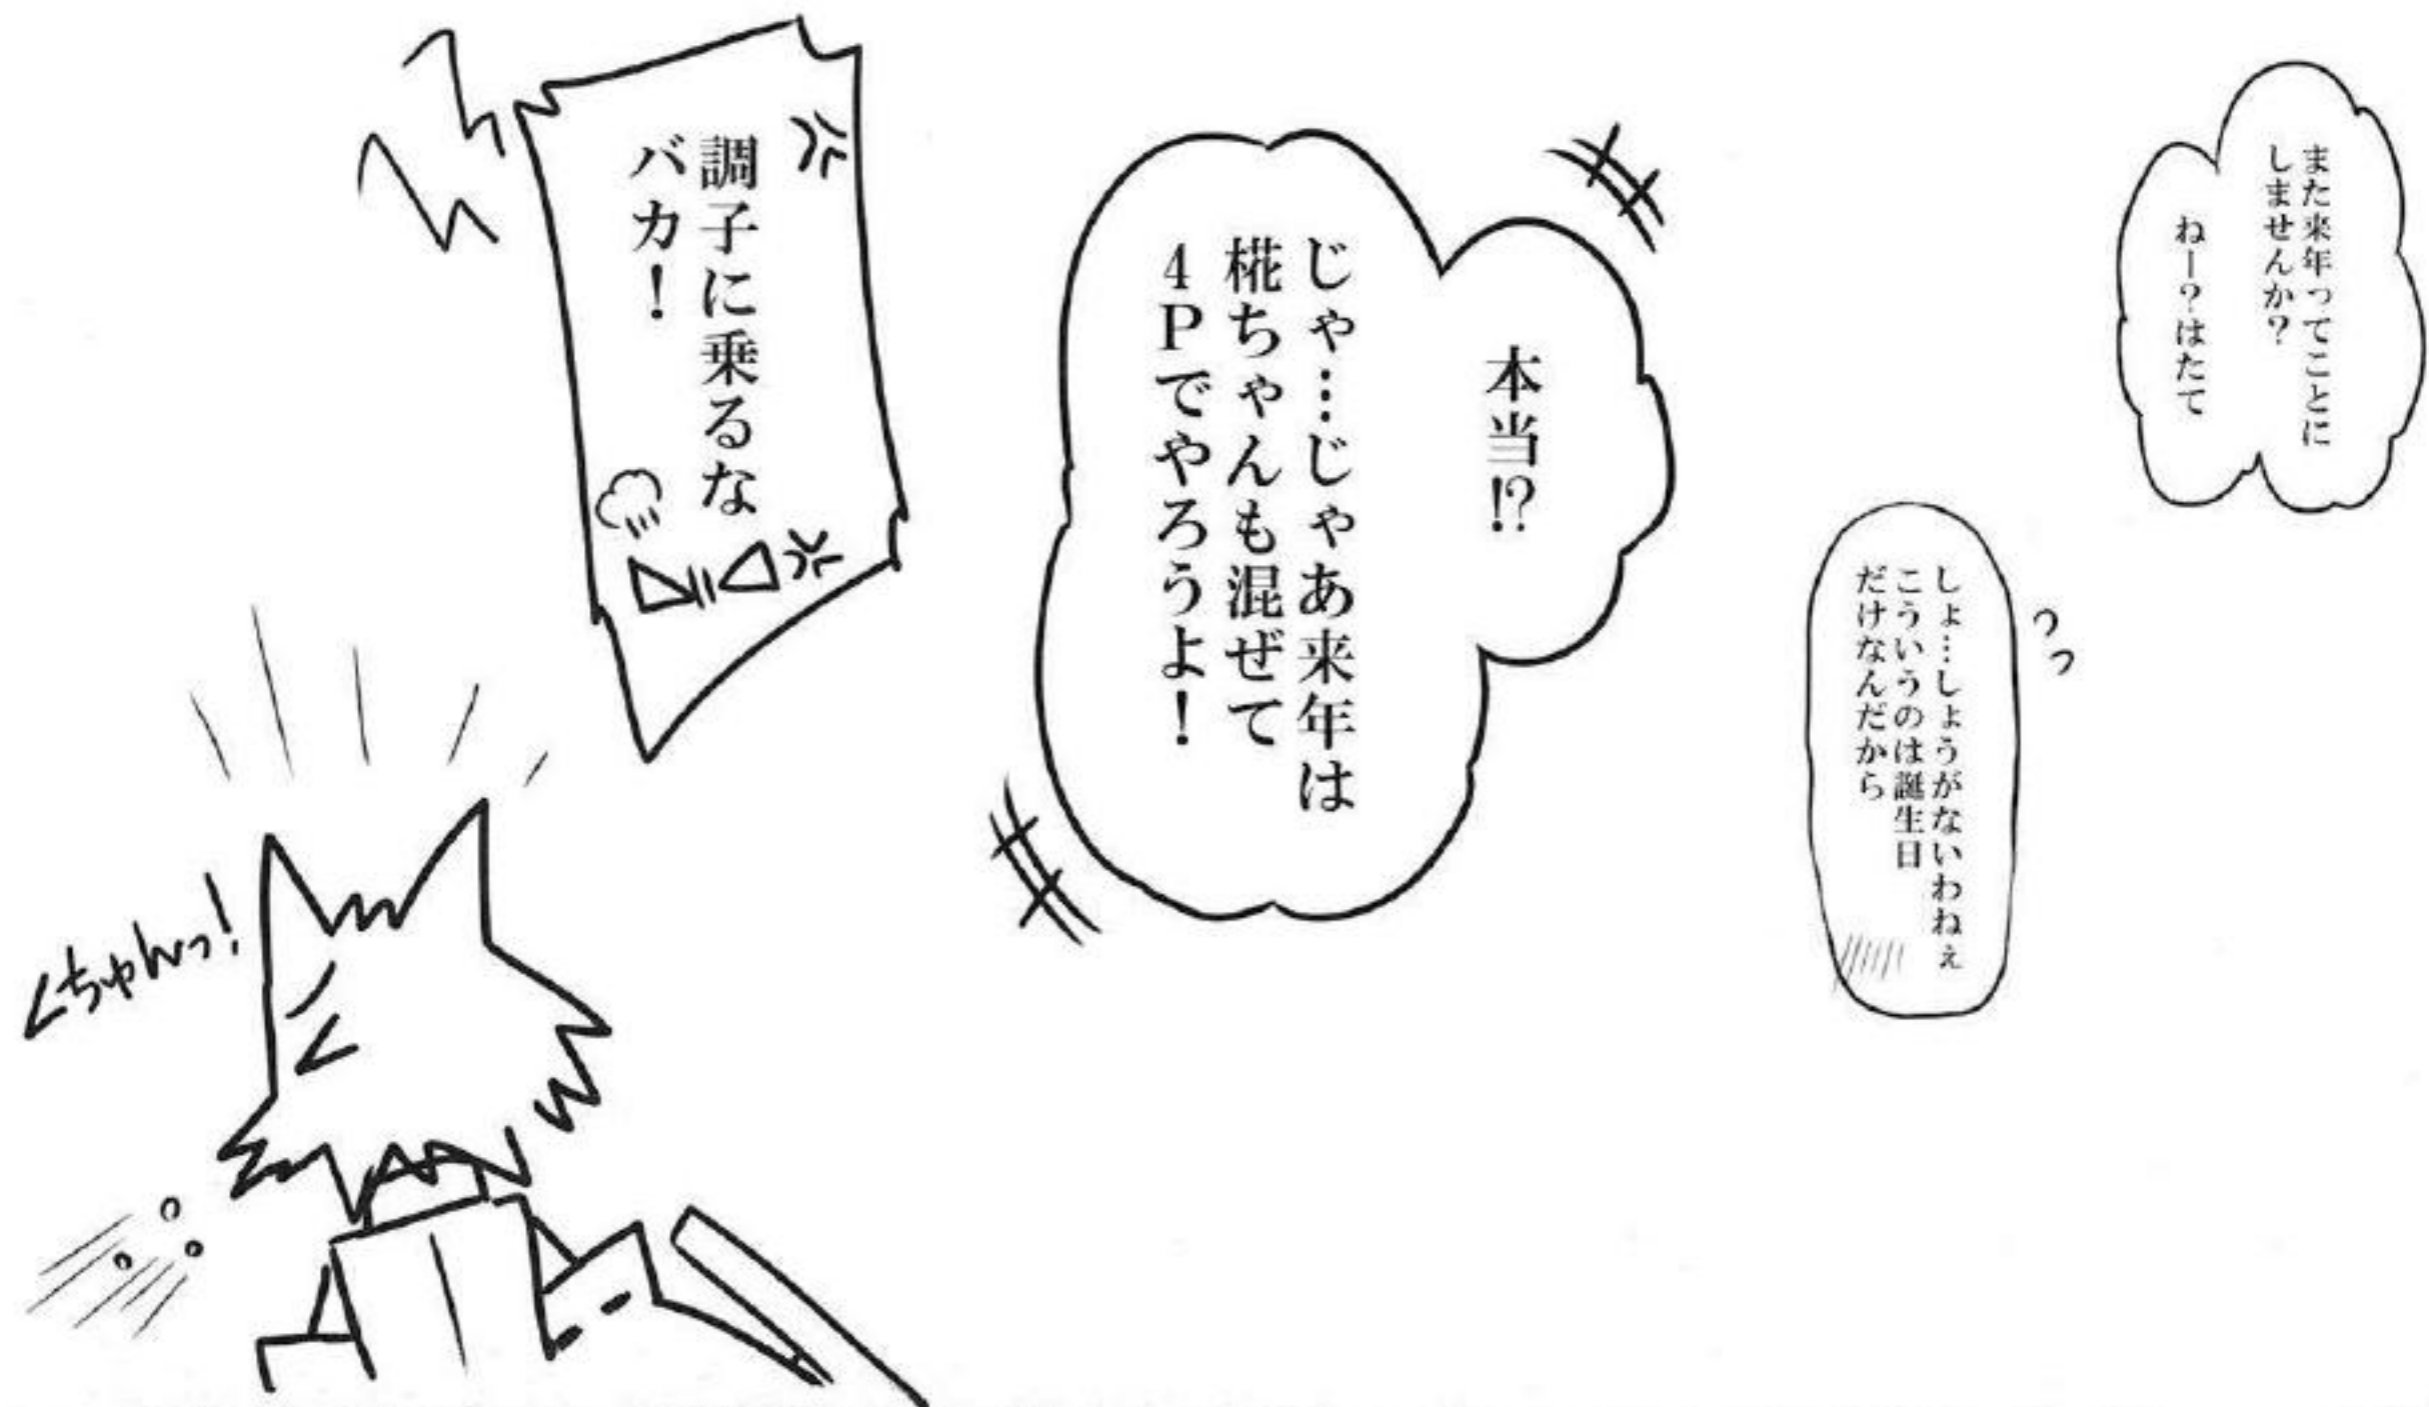 また来年ってことに
しませんか?
ねー?はたて
しょ…しょうがないわねぇ
こういうのは誕生日
だけなんだから
本当!?
じゃ…じゃあ来年は
椛ちゃんも混ぜて
4Pでやろうよ!
調子に乗るな
バカ!
くちゅんっ!